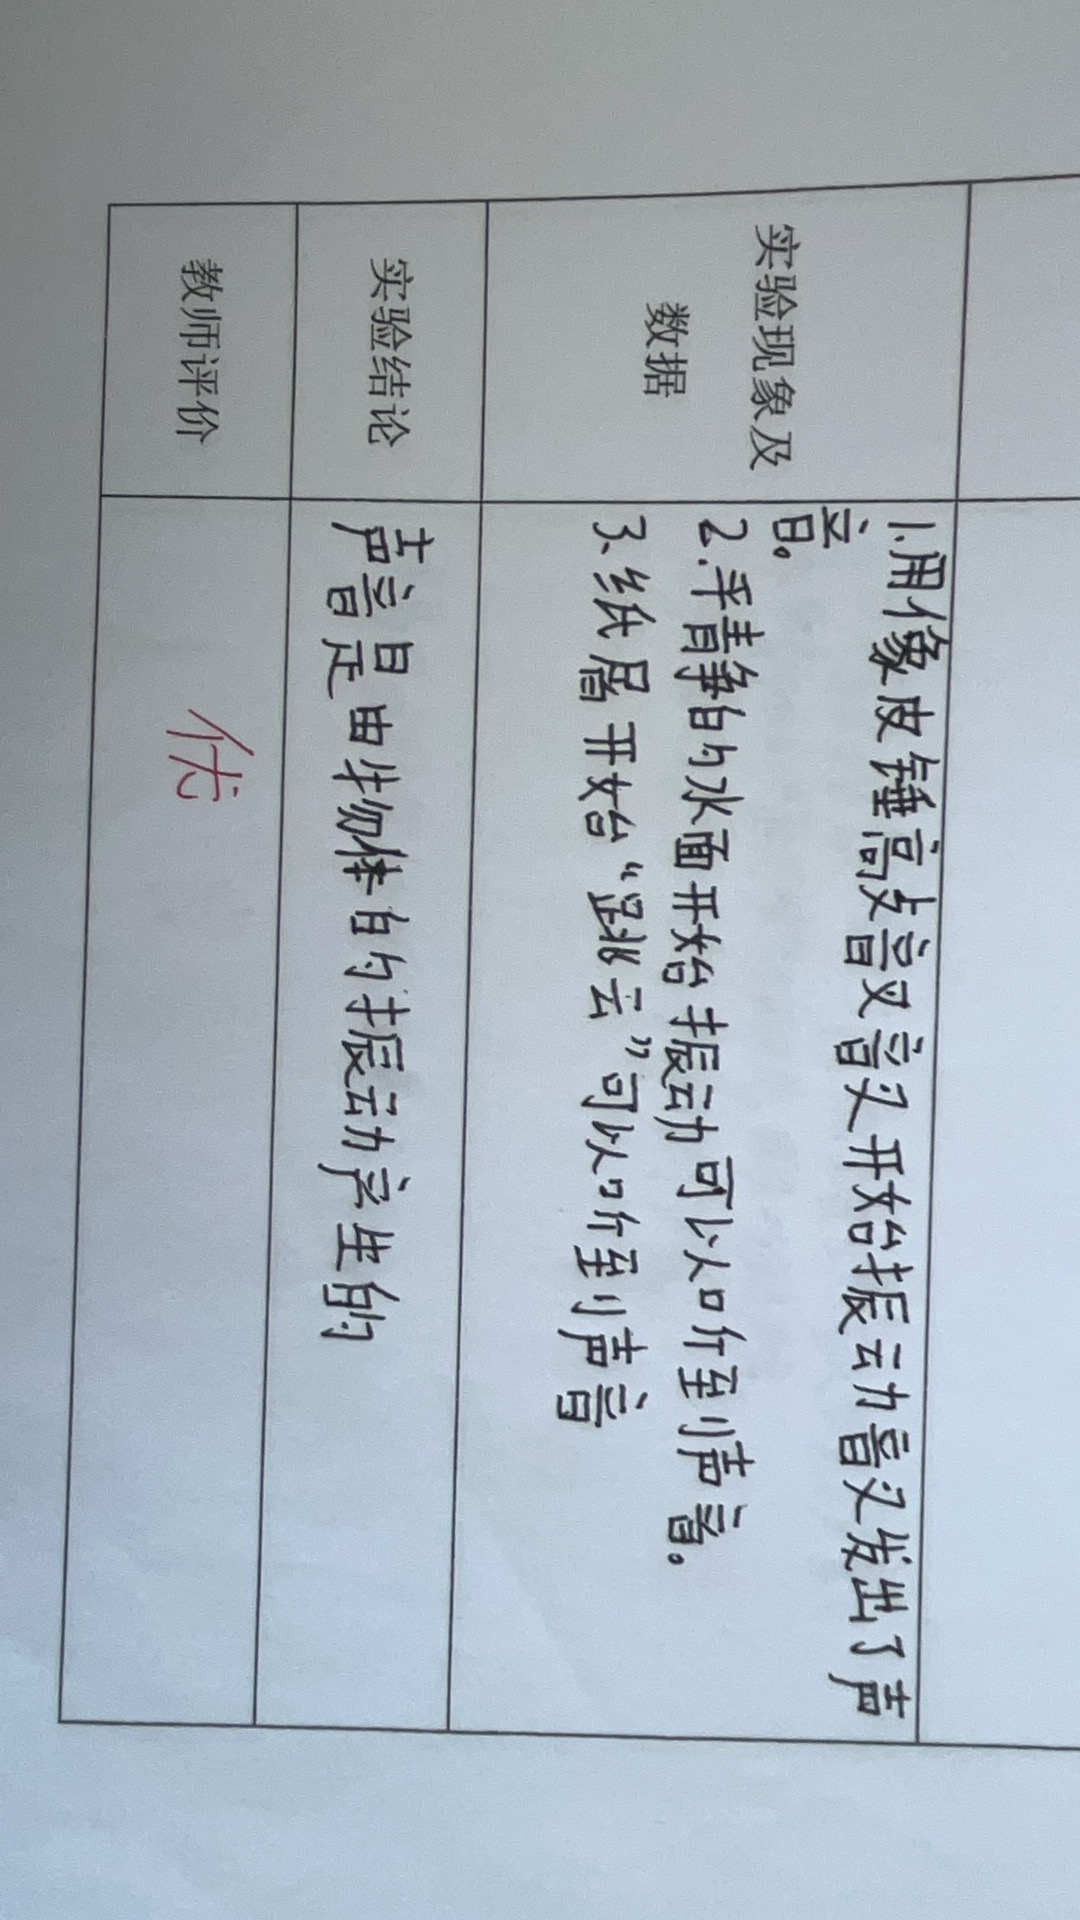 实验现象及
数据
1.用像皮锤敲音叉音叉开始振动音叉发出了声
音。
2.平静的水面开始振动可以听到声音。
3、纸屑开始“跳云”可以听到声音
实验结论
声音是由物体的振动产生的
教师评价
优